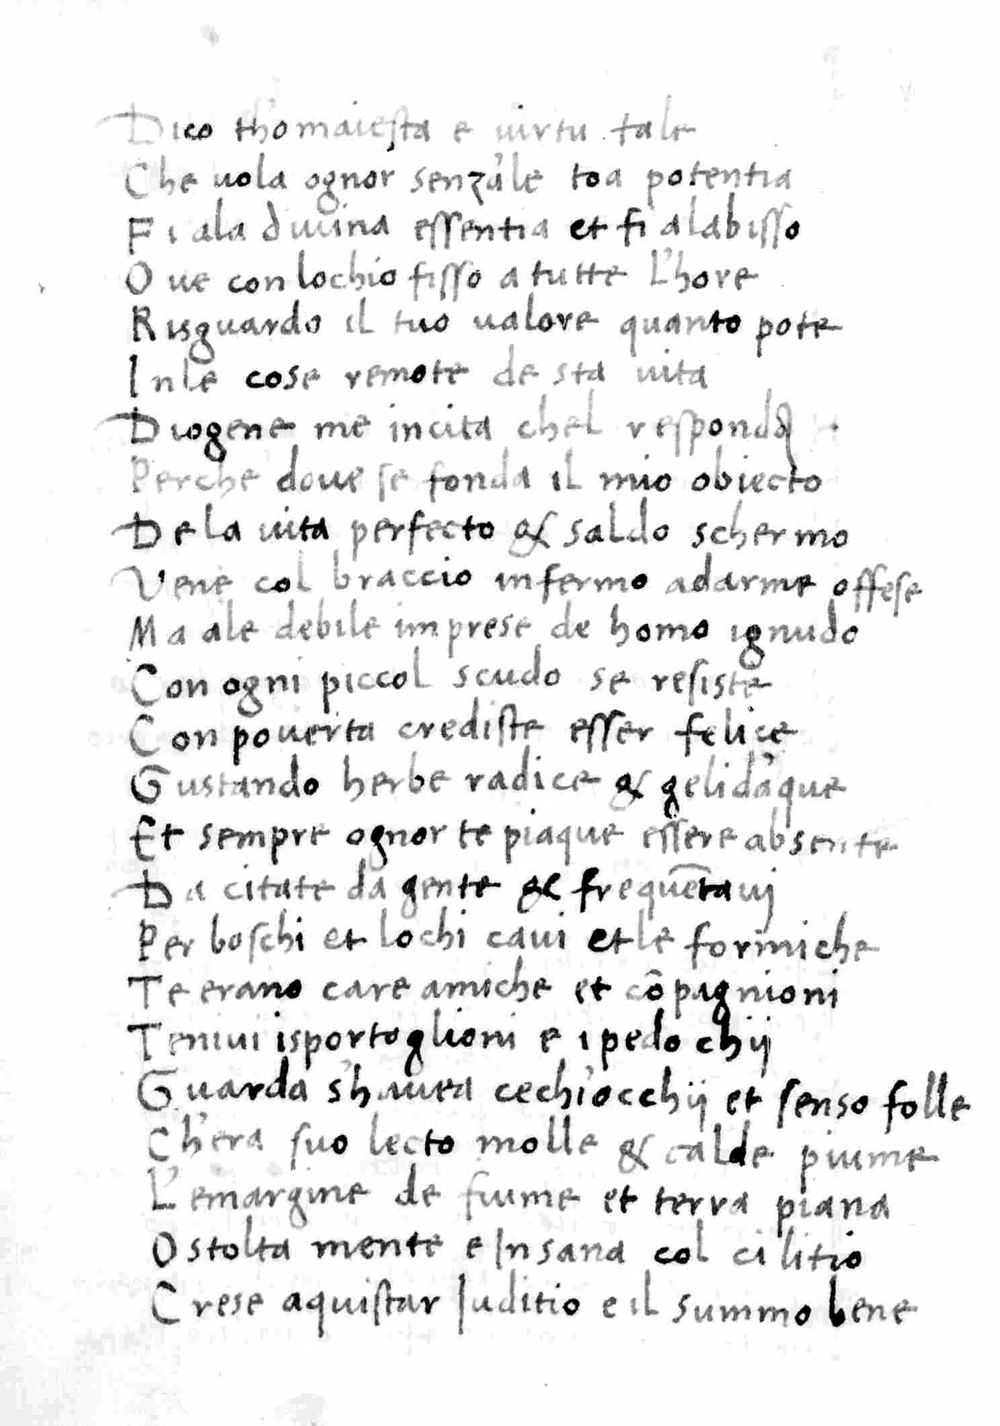 Dico th'o maiesta e uirtu tale
Che uola ognor senz'a'le toa potentia
Fi ala diuina essentia et fi alabisso
Oue con lochio fisso a tutte L'hore
Risguardo il tuo ualore quanto pote
Inle cose remote de sta uita
Diogene me incita chel responda
Perche doue se fonda il mio obiecto
De la uita perfecto & saldo schermo
Vene col braccio infermo adarme offese
Ma ale debile imprese de homo ignudo
Con ogni piccol scudo se resiste
Con pouerta crediste esser felice
Gustando herbe radice & gelida'que
Et sempre ognor te piaque essere absente
Da citate da gente & frequētauj
Per boschi et lochi caui et le formiche
Te erano care amiche et cōpagnioni
Teniui isportoglioni e i pedochij
Guarda s'hauea cechi'occhij et senso folle
Ch'era suo lecto molle & calde piume
L'emargine de fiume et terra piana
O stolta mente e Insana col cilitio
Crese aquistar Iuditio e il summo bene